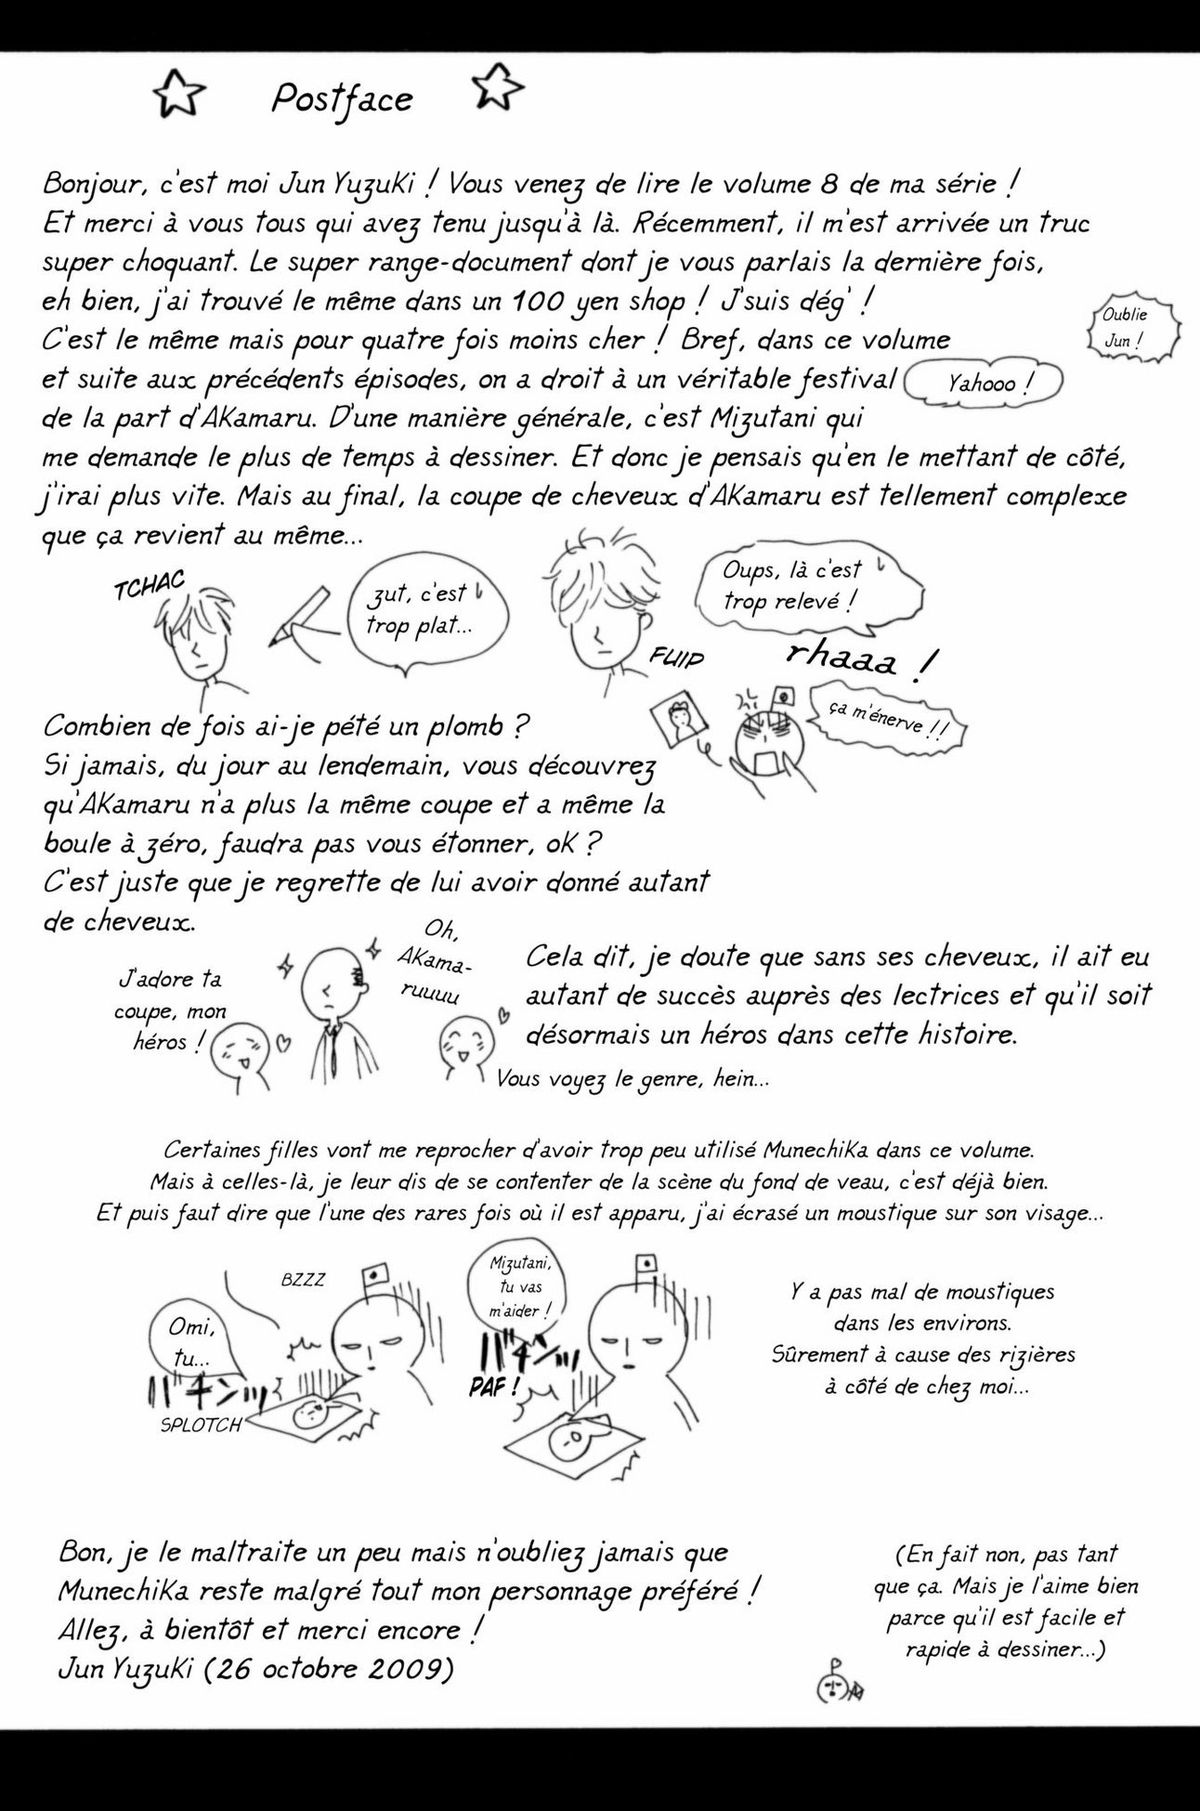 Postface
Bonjour, c'est moi Jun Yuzuki ! Vous venez de lire le volume 8 de ma série !
Et merci à vous tous qui avez tenu jusqu'à là. Récemment, il m'est arrivée un truc
super choquant. Le super range-document dont je vous parlais la dernière fois,
eh bien, j'ai trouvé le même dans un 100 yen shop ! J'suis dég' !
Oublie
Jun !
C'est le même mais pour quatre fois moins cher ! Bref, dans ce volume
et suite aux précédents épisodes, on a droit à un véritable festival
Yahooo !
de la part d'Akamaru. D'une manière générale, c'est Mizutani qui
me demande le plus de temps à dessiner. Et donc je pensais qu'en le mettant de côté,
j'irai plus vite. Mais au final, la coupe de cheveux d'Akamaru est tellement complexe
que ça revient au même...
TCHAC
zut, c'est
trop plat...
Oups, là c'est
trop relevé !
FUIP
rhaaa !
ça m'énerve !!
Combien de fois ai-je pété un plomb ?
Si jamais, du jour au lendemain, vous découvrez
qu'Akamaru n'a plus la même coupe et a même la
boule à zéro, faudra pas vous étonner, ok ?
C'est juste que je regrette de lui avoir donné autant
de cheveux.
J'adore ta
coupe, mon
héros !
Oh,
Akama-
ruuuu
Cela dit, je doute que sans ses cheveux, il ait eu
autant de succès auprès des lectrices et qu'il soit
désormais un héros dans cette histoire.
Vous voyez le genre, hein...
Certaines filles vont me reprocher d'avoir trop peu utilisé Munechika dans ce volume.
Mais à celles-là, je leur dis de se contenter de la scène du fond de veau, c'est déjà bien.
Et puis faut dire que l'une des rares fois où il est apparu, j'ai écrasé un moustique sur son visage...
BZZZ
Omi,
tu...
バキンッ
SPLOTCH
Mizutani,
tu vas
m'aider !
バキンッ
PAF !
Y a pas mal de moustiques
dans les environs.
Sûrement à cause des rizières
à côté de chez moi...
Bon, je le maltraite un peu mais n'oubliez jamais que
Munechika reste malgré tout mon personnage préféré !
Allez, à bientôt et merci encore !
Jun Yuzuki (26 octobre 2009)
(En fait non, pas tant
que ça. Mais je l'aime bien
parce qu'il est facile et
rapide à dessiner...)